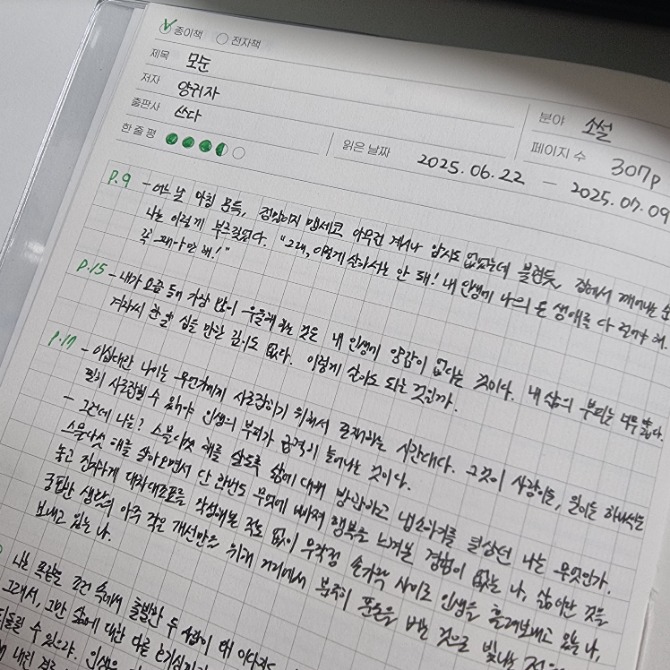 종이책 전자책
제목 모순
저자 양귀자
출판사 쓰다
분야 소설
페이지 수 307p
한 줄 평
읽은 날짜 2025.06.22 — 2025.07.09
p.9 - 어느 날 아침 문득, 정말이지 맹세코 아무런 계시나 암시도 없었는데 불현듯, 잠에서 깨어나는 순
나는 이렇게 부르짖었다. "그래, 이렇게 살아서는 안 돼! 내 인생에 나의 온 생애를 다 걸어야 해.
꼭 그래야만 해!"
p.15 - 내가 요즘 들어 가장 많이 우울해 하는 것은 내 인생에 양감이 없다는 것이다. 내 삶의 부피는 너무 얇다.
겨자씨 한 알 심을 만한 깊이도 없다. 이렇게 살아도 되는 것일까.
p.17 - 이십대란 나이는 무언가에게 사로잡히기 위해서 존재하는 시간대다. 그것이 사랑이든, 일이든 하나씩은
필히 사로잡힐 수 있어야 인생의 부피가 급격히 늘어나는 것이다.
- 그런데 나는? 스물다섯 해를 살도록 삶에 대해 방관하고 냉소하기를 일삼던 나는 무엇인가.
스물다섯 해를 살아오면서 단 한번도 무엇에 빠져 행복을 느껴본 경험이 없는 나, 삶이란 것을
놓고 진지하게 대차대조표를 작성해본 적도 없이 무작정 손가락 사이로 인생을 흘려보내고 있는 나.
궁핍한 생활의 아주 작은 개선만을 위해 거리에서 푼돈을 버는 것으로
보내고 있는 나.
나는 똑같은 조건 속에서 출발한 두 사람이 왜
그래서, 그만 삶에 대한 다른 호기심까지
수 있으랴. 인생은